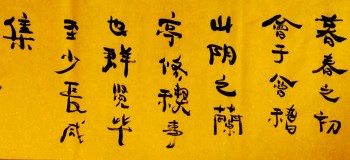 暮春之初
會于會稽
山阴之蘭
亭修禊事
也群贤毕
至少長咸
集